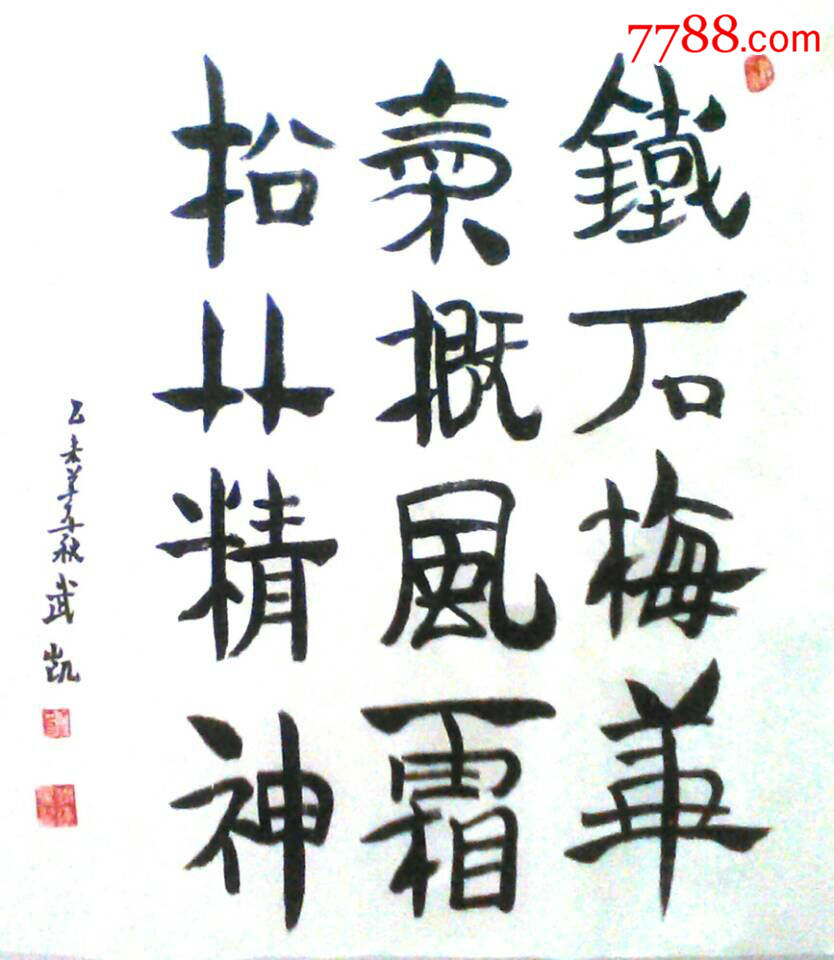 7788.com
鐵石梅華
氣概風霜
松竹精神
乙未羊年秋 武凯